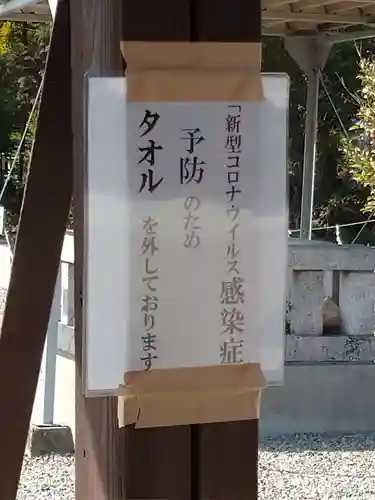 「新型コロナウイルス感染症
予防のため
タオルを外しております